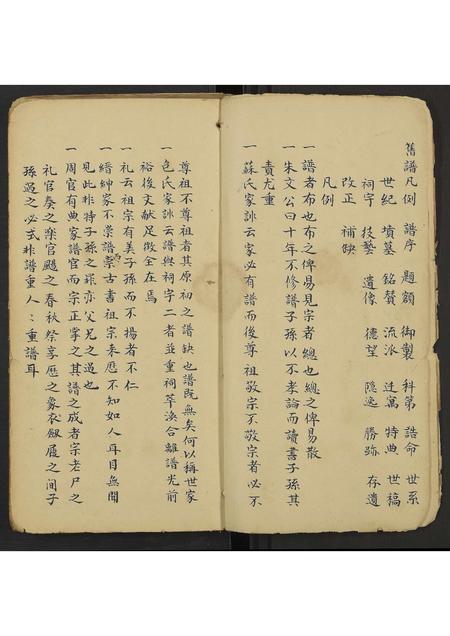 舊譜凡例 譜序 題額 御製 科第 誥命 世系
世紀 墳墓 銘贊 流派 迁寓 特典 世稿
祠宇 技藝 遺像 德望 隐逸 勝跡 存遺
改正 補缺
凡例
一 譜者布也布之俾易見宗者總也總之俾易散
一 朱文公曰十年不修譜子孫以不孝論而讀書子孫其
責尤重
一 蘇氏家訓云家必有譜而後尊祖敬宗不敬宗者必不
尊祖不尊祖者其原初之譜缺也譜既無矣何以稱世家
一 包氏家訓云譜與祠宇二者並重祠萃渙合離譜光前
裕後文献足徴全在焉
一 礼云祖宗有美子孫而不揚者不仁
一 縉紳家不崇譜票古書祖宗来歷不知如人耳目無聞
見此非特子孫之罪亦父兄之過也
一 周官有典家譜官而宗正掌之其譜之成者宗老尸之
礼官奏之樂官颺之春秋祭享歷之象衣劔履之间子
孫過之必式非譜重人人重譜耳